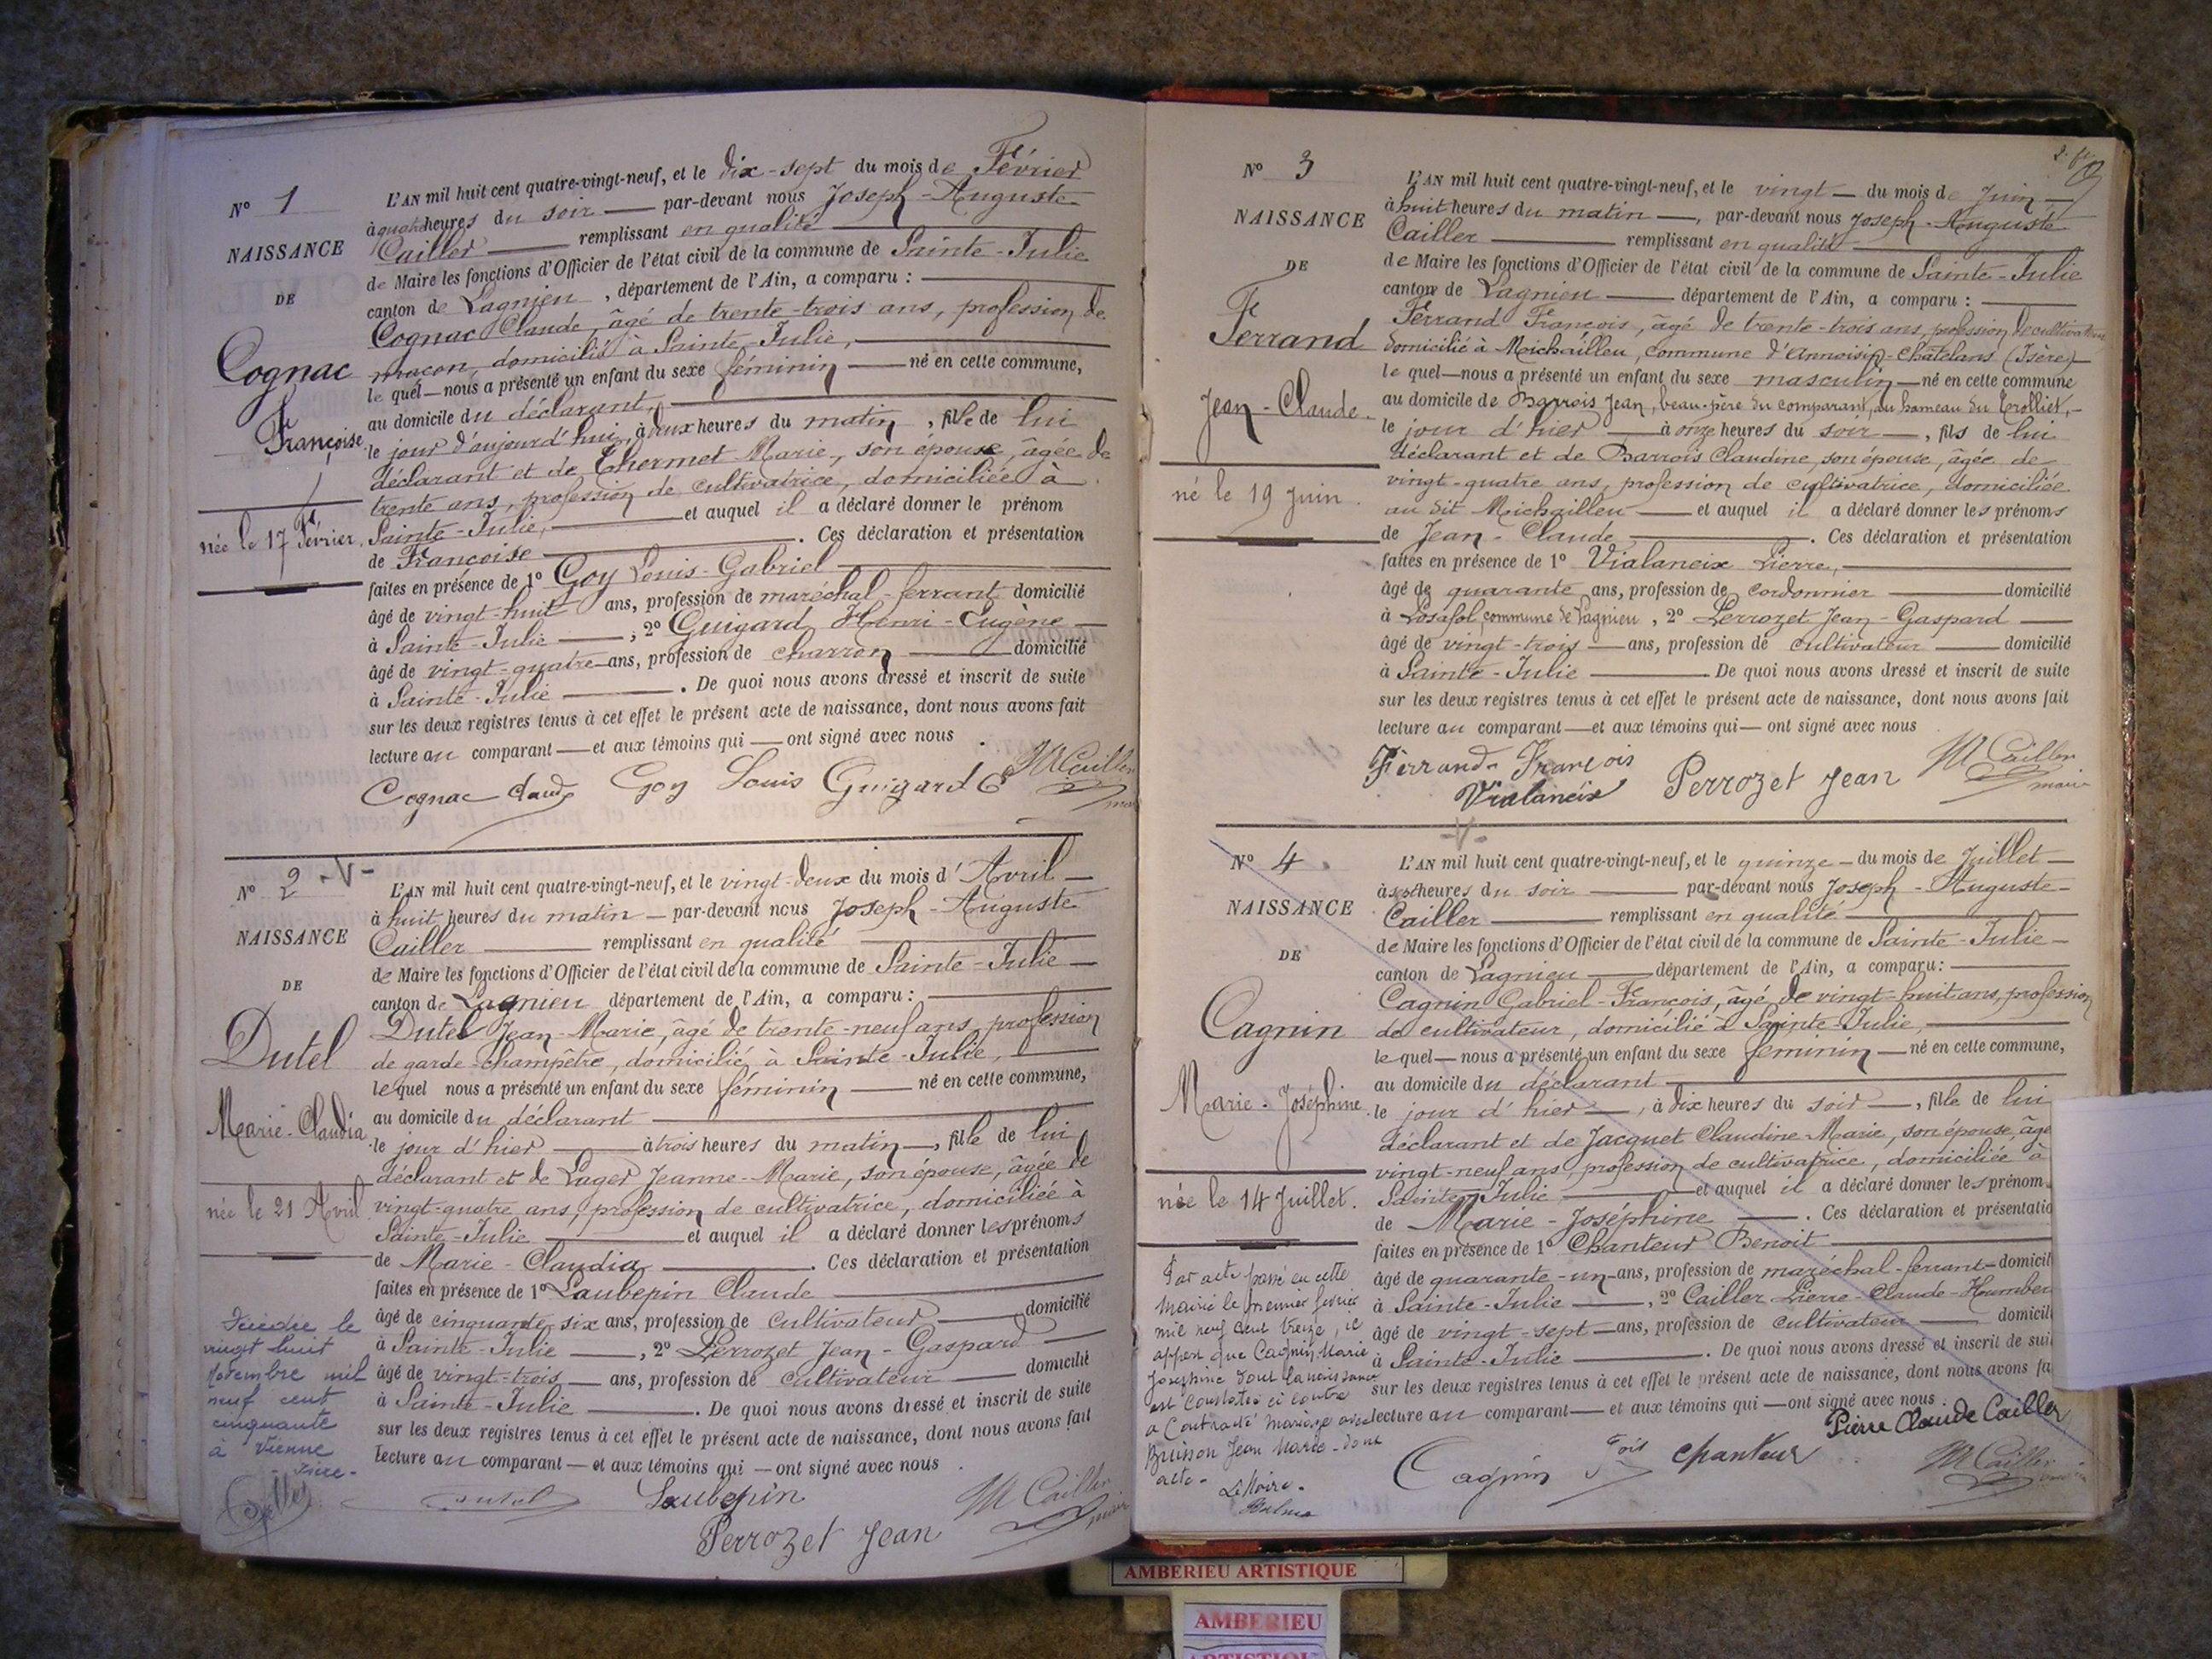 N° 1
NAISSANCE
DE
Cognac
Françoise
née le 17 Février.
L'AN mil huit cent quatre-vingt-neuf, et le dix-sept du mois de Février
à quatre heures du soir — par-devant nous Joseph-Auguste
Cailler — remplissant en qualité
de Maire les fonctions d'Officier de l'état civil de la commune de Sainte-Julie
canton de Lagnieu, département de l'Ain, a comparu :
Cognac Claude, âgé de trente-trois ans, profession de
maçon, domicilié à Sainte-Julie,
lequel — nous a présenté un enfant du sexe féminin — né en cette commune,
au domicile du déclarant,
le jour d'aujourd'hui, à deux heures du matin, fille de lui
déclarant et de Thermet Marie, son épouse, âgée de
trente ans, profession de cultivatrice, domiciliée à
Sainte-Julie, — et auquel il a déclaré donner le prénom
de Françoise — . Ces déclaration et présentation
faites en présence de 1° Goy Louis-Gabriel
âgé de vingt-huit ans, profession de maréchal-ferrant domicilié
à Sainte-Julie — ; 2° Guigard Henri-Eugène —
âgé de vingt-quatre — ans, profession de charron — domicilié
à Sainte-Julie — . De quoi nous avons dressé et inscrit de suite
sur les deux registres tenus à cet effet le présent acte de naissance, dont nous avons fait
lecture au comparant — et aux témoins qui — ont signé avec nous .
Cognac Claude Goy Louis Guigard E M Cailler
maire
N° 2 -V-
NAISSANCE
DE
Dutel
Marie-Claudia
née le 21 Avril
L'AN mil huit cent quatre-vingt-neuf, et le vingt-deux du mois d'Avril —
à huit heures du matin — par-devant nous Joseph-Auguste
Cailler — remplissant en qualité
de Maire les fonctions d'Officier de l'état civil de la commune de Sainte-Julie —
canton de Lagnieu département de l'Ain, a comparu :
Dutel Jean-Marie, âgé de trente-neuf ans, profession
de garde-champêtre, domicilié à Sainte-Julie,
lequel nous a présenté un enfant du sexe féminin — né en cette commune,
au domicile du déclarant
le jour d'hier — à trois heures du matin —, fille de lui
déclarant et de Lager Jeanne-Marie, son épouse, âgée de
vingt-quatre ans, profession de cultivatrice, domiciliée à
Sainte-Julie — et auquel il a déclaré donner les prénoms
de Marie-Claudia — . Ces déclaration et présentation
faites en présence de 1° Laubepin Claude
âgé de cinquante-six ans, profession de cultivateur — domicilié
à Sainte-Julie — , 2° Perrozet Jean-Gaspard —
âgé de vingt-trois — ans, profession de cultivateur — domicilié
à Sainte-Julie — . De quoi nous avons dressé et inscrit de suite
sur les deux registres tenus à cet effet le présent acte de naissance, dont nous avons fait
lecture au comparant — et aux témoins qui — ont signé avec nous .
Décédée le
vingt huit
novembre mil
neuf cent
cinquante
à Vienne
- Isère -
Dutel Laubepin M Cailler
maire
Perrozet Jean
N° 3
NAISSANCE
DE
Ferrand
Jean-Claude.
né le 19 Juin.
L'AN mil huit cent quatre-vingt-neuf, et le vingt — du mois de Juin —
à huit heures du matin —, par-devant nous Joseph-Auguste
Cailler — remplissant en qualité
de Maire les fonctions d'Officier de l'état civil de la commune de Sainte-Julie
canton de Lagnieu — département de l'Ain, a comparu :
Ferrand François, âgé de trente-trois ans, profession de cultivateur
domicilié à Michailleu, commune d'Annoisin-Châtelans (Isère) —
lequel — nous a présenté un enfant du sexe masculin — né en cette commune
au domicile de Barrois Jean, beau-père du comparant, au hameau du Trolliet, —
le jour d'hier — à onze heures du soir —, fils de lui
déclarant et de Barrois Claudine, son épouse, âgée de
vingt-quatre ans, profession de cultivatrice, domiciliée
au dit Michailleu — et auquel il a déclaré donner les prénoms
de Jean-Claude — . Ces déclaration et présentation
faites en présence de 1° Vialaneix Pierre,
âgé de quarante ans, profession de cordonnier — domicilié
à Posafol, commune de Lagnieu, 2° Perrozet Jean-Gaspard —
âgé de vingt-trois — ans, profession de cultivateur — domicilié
à Sainte-Julie — De quoi nous avons dressé et inscrit de suite
sur les deux registres tenus à cet effet le présent acte de naissance, dont nous avons fait
lecture au comparant — et aux témoins qui — ont signé avec nous
Ferrand François M Cailler
maire
Vialaneix Perrozet Jean
-V-
N° 4
NAISSANCE
DE
Cagnin
Marie-Joséphine.
née le 14 Juillet.
L'AN mil huit cent quatre-vingt-neuf, et le quinze — du mois de Juillet —
à sept heures du soir — par-devant nous Joseph-Auguste —
Cailler — remplissant en qualité
de Maire les fonctions d'Officier de l'état civil de la commune de Sainte-Julie —
canton de Lagnieu — département de l'Ain, a comparu :
Cagnin Gabriel-François, âgé de vingt-huit ans, profession
de cultivateur, domicilié à Sainte-Julie,
lequel — nous a présenté un enfant du sexe féminin — né en cette commune,
au domicile du déclarant
le jour d'hier —, à dix heures du soir —, fille de lui
déclarant et de Jacquet Claudine-Marie, son épouse, âgé
vingt-neuf ans, profession de cultivatrice, domiciliée à
Sainte-Julie — et auquel il a déclaré donner les prénom
de Marie-Joséphine — . Ces déclaration et présentatio
faites en présence de 1° Chanteur Benoit
âgé de quarante-un — ans, profession de maréchal-ferrant — domicil
à Sainte-Julie — , 2° Cailler Pierre-Claude-Humber
âgé de vingt-sept — ans, profession de cultivateur — domicil
à Sainte-Julie — . De quoi nous avons dressé et inscrit de sui
sur les deux registres tenus à cet effet le présent acte de naissance, dont nous avons fa
lecture au comparant — et aux témoins qui — ont signé avec nous .
Par acte passé en cette
mairie le premier février
mil neuf cent treize, il
appert que Cagnin Marie
Josephine dont la naissance
est constatée ci contre
a contracté mariage avec
Buisson Jean Marie - dont
acte -
Le Maire.
Pierre Claude Cailler
Cagnin fois chanteur M Cailler
AMBERIEU ARTISTIQUE
AMBERIEU
ARTISTIQU